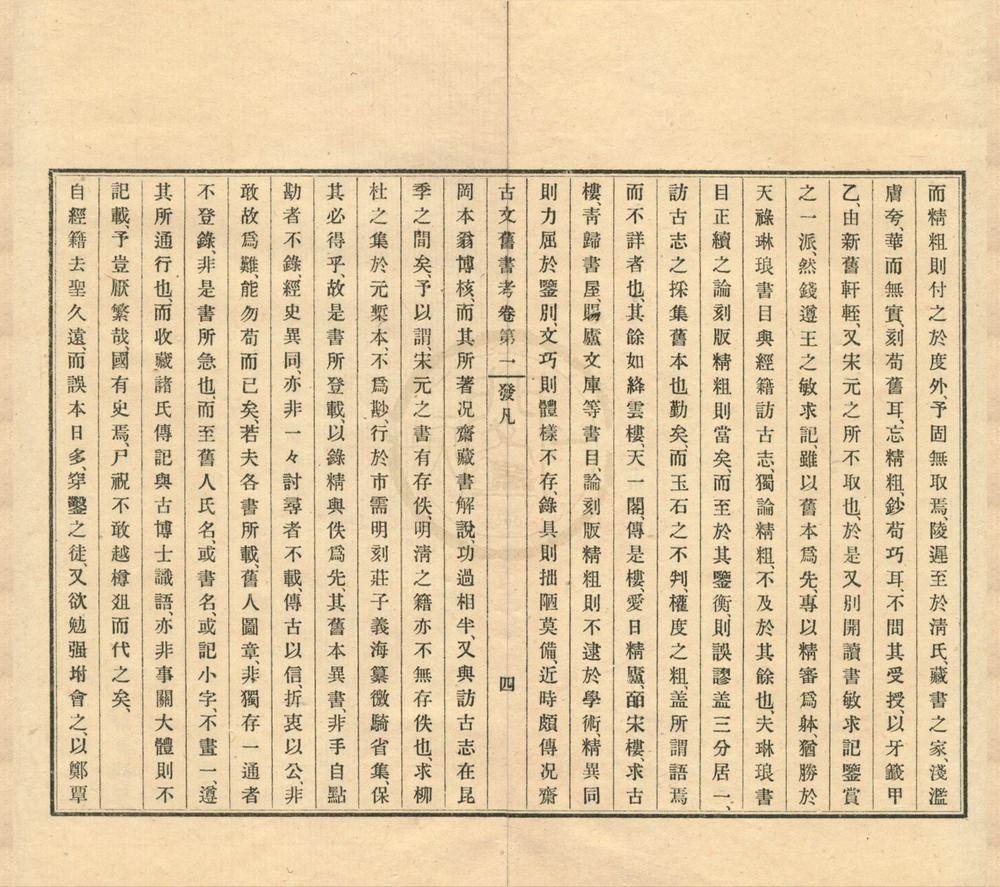 而精粗則付之於度外、予固無取焉、陵遲至於淸氏、藏書之家、淺濫
膚夸、華而無實、刻苟舊耳、忘精粗、鈔苟巧耳、不問其受授、以牙籤甲
乙、由新舊軒輊、又宋元之所不取也、於是又別開讀書敏求記鑒賞
之一派、然錢遵王之敏求記、雖以舊本爲先、專以精審爲躰、猶勝於
天祿琳琅書目與經籍訪古志、獨論精粗、不及於其餘也、夫琳琅書
目正續之論刻版精粗則當矣、而至於其鑒衡、則誤謬盖三分居一、
訪古志之採集舊本也勤矣、而玉石之不判、權度之粗、盖所謂語焉
而不詳者也、其餘如絳雲樓、天一閣、傳是樓、愛日精廬、皕宋樓、求古
樓、靑歸書屋、賜廬文庫等書目、論刻版精粗則不逮於學術、精異同
則力屈於鑒別、文巧則體樣不存、錄具則拙陋莫備、近時頗傳况齋
古文舊書考卷第一 發凡 四
岡本翁博核、而其所著况齋藏書解說、功過相半、又與訪古志在昆
季之間矣、予以謂、宋元之書有存佚、明淸之籍亦不無存佚也、求柳
杜之集於元槧本、不爲尠、行於市需明刻莊子義海纂微騎省集、保
其必得乎、故是書所登載、以錄精與佚爲先、其舊本異書、非手自點
勘者不錄、經史異同、亦非一々討尋者不載、傳古以信折衷以公、非
敢故爲難、能勿苟而已矣、若夫各書所載、舊人圖章、非獨存一通者
不登錄、非是書所急也、而至舊人氏名、或書名、或記小字、不畫一、遵
其所通行也、而收藏諸氏傳記與古博士識語、亦非事關大體則不
記載、予豈厭繁哉、國有史焉、尸祝不敢越樽俎而代之矣、
自經籍去聖久遠、而誤本日多、穿鑿之徒、又欲勉强坿會之、以鄭覃